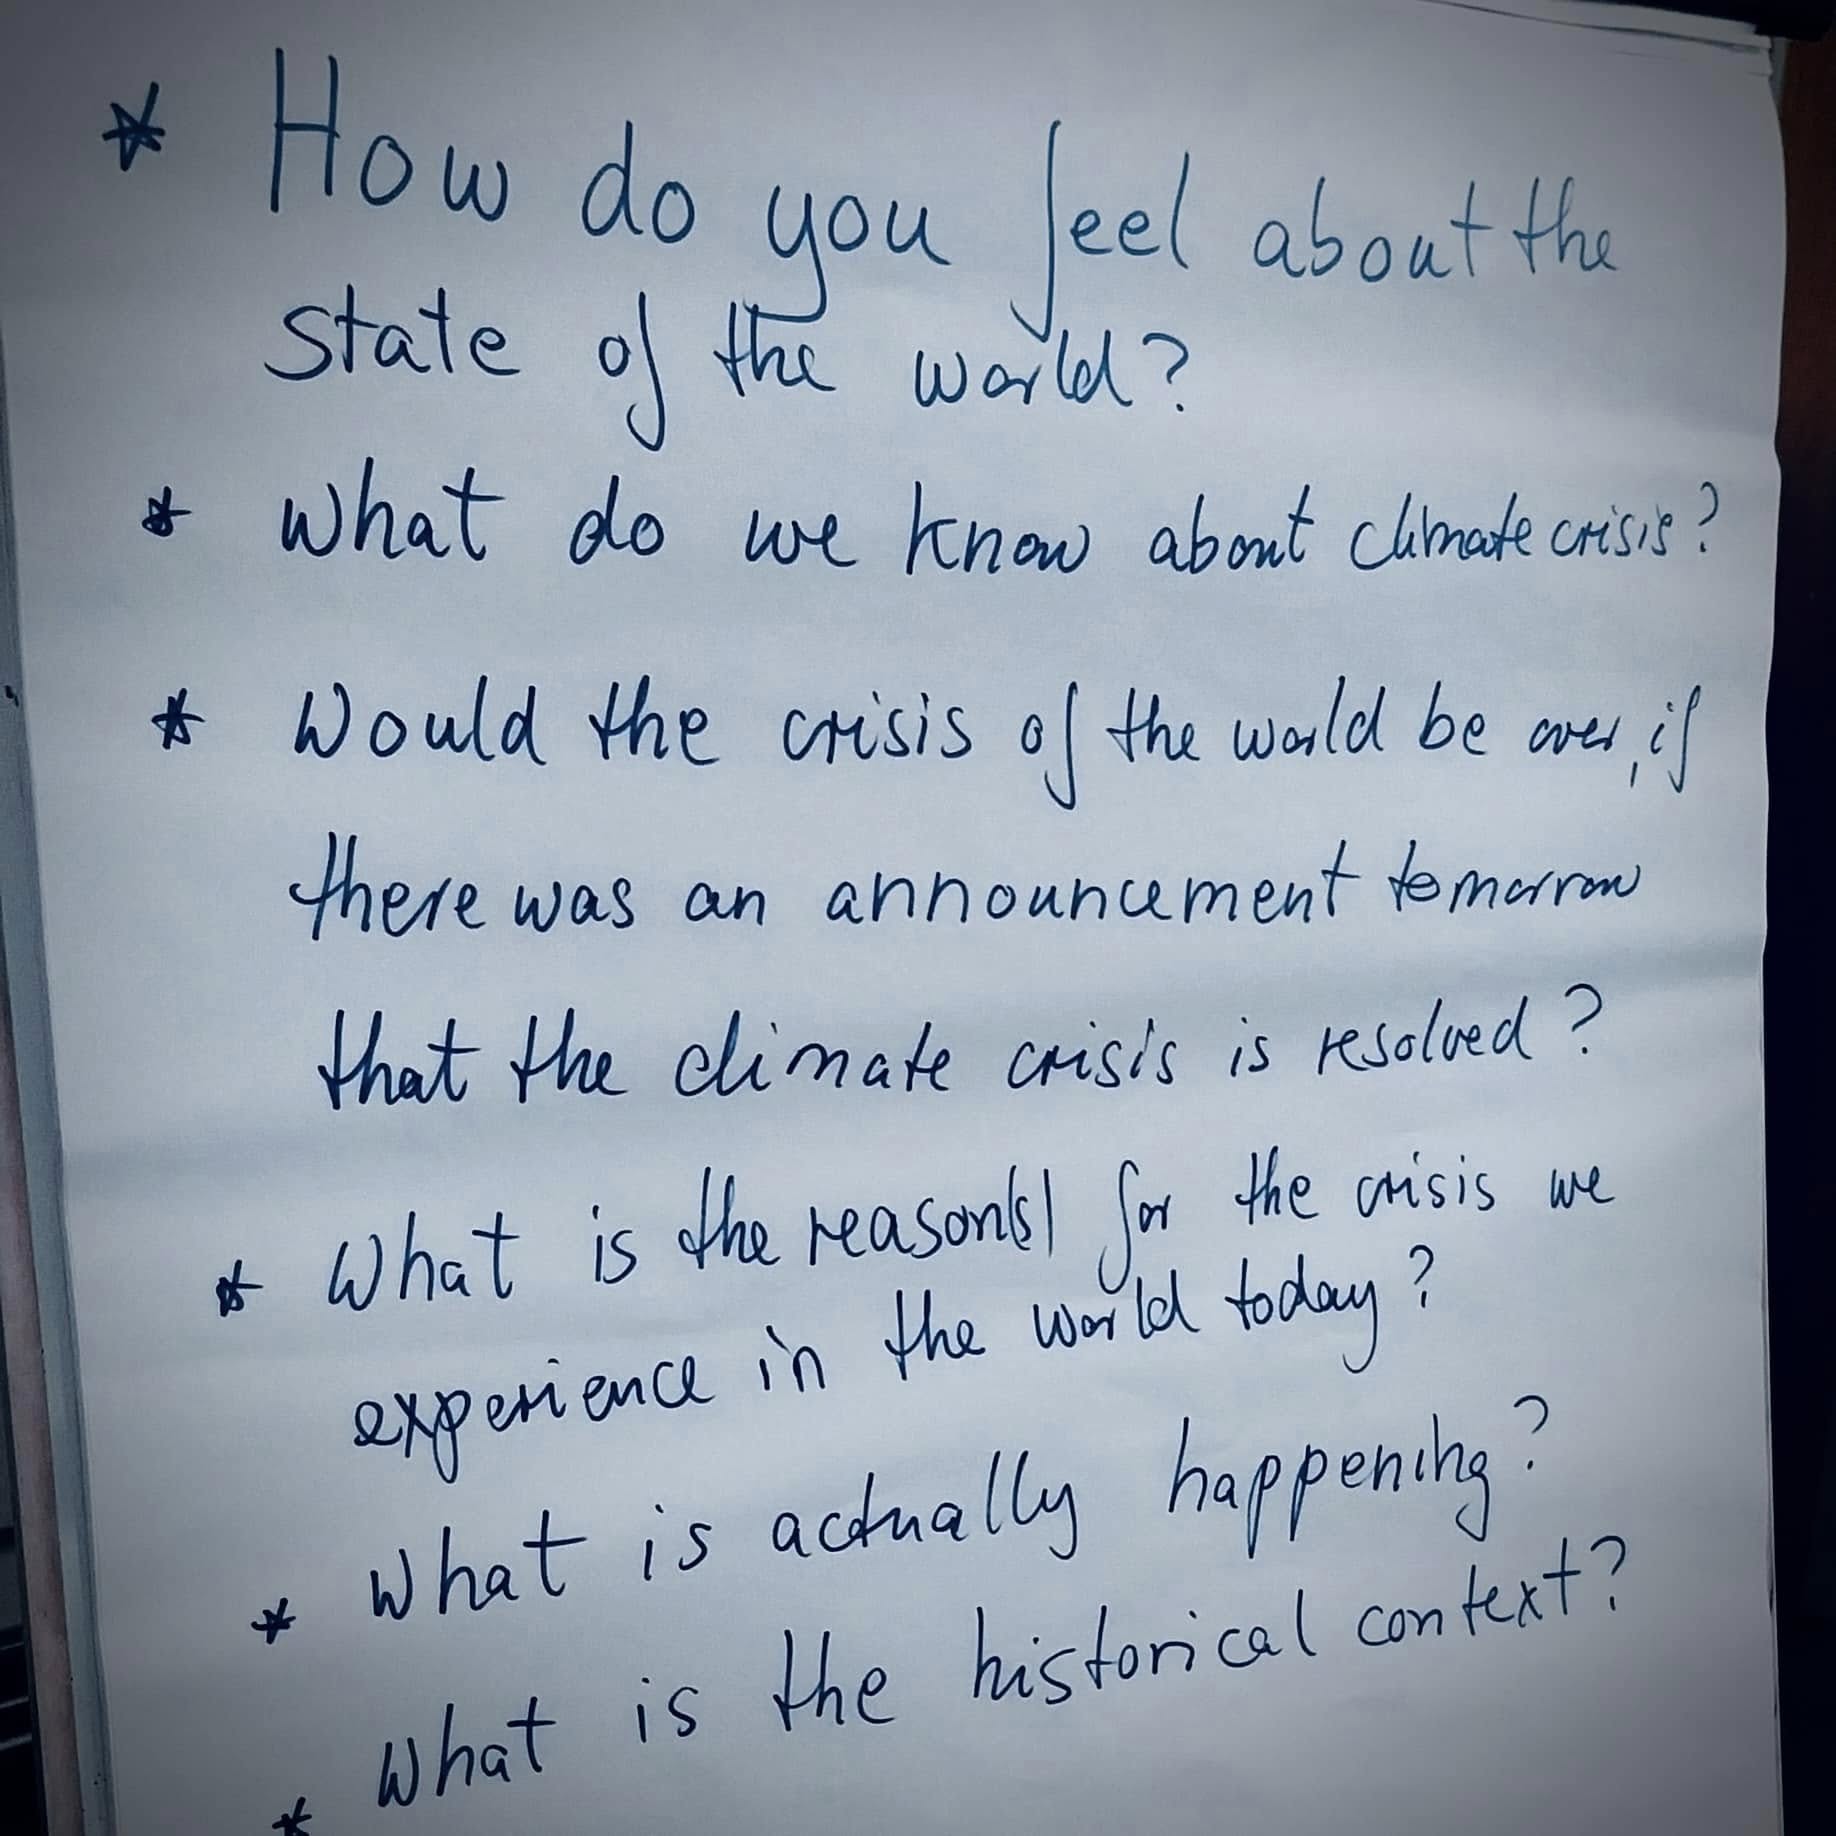 * How do you feel about the
state of the world?
* What do we know about climate crisis?
* Would the crisis of the world be over, if
there was an announcement tomorrow
that the climate crisis is resolved?
* What is the reason(s) for the crisis we
experience in the world today?
* What is actually happening?
* What is the historical context?